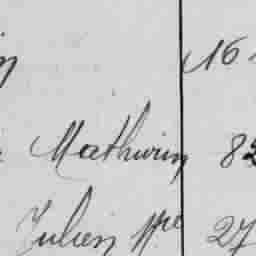 16
Mathurin 82
Julien 27